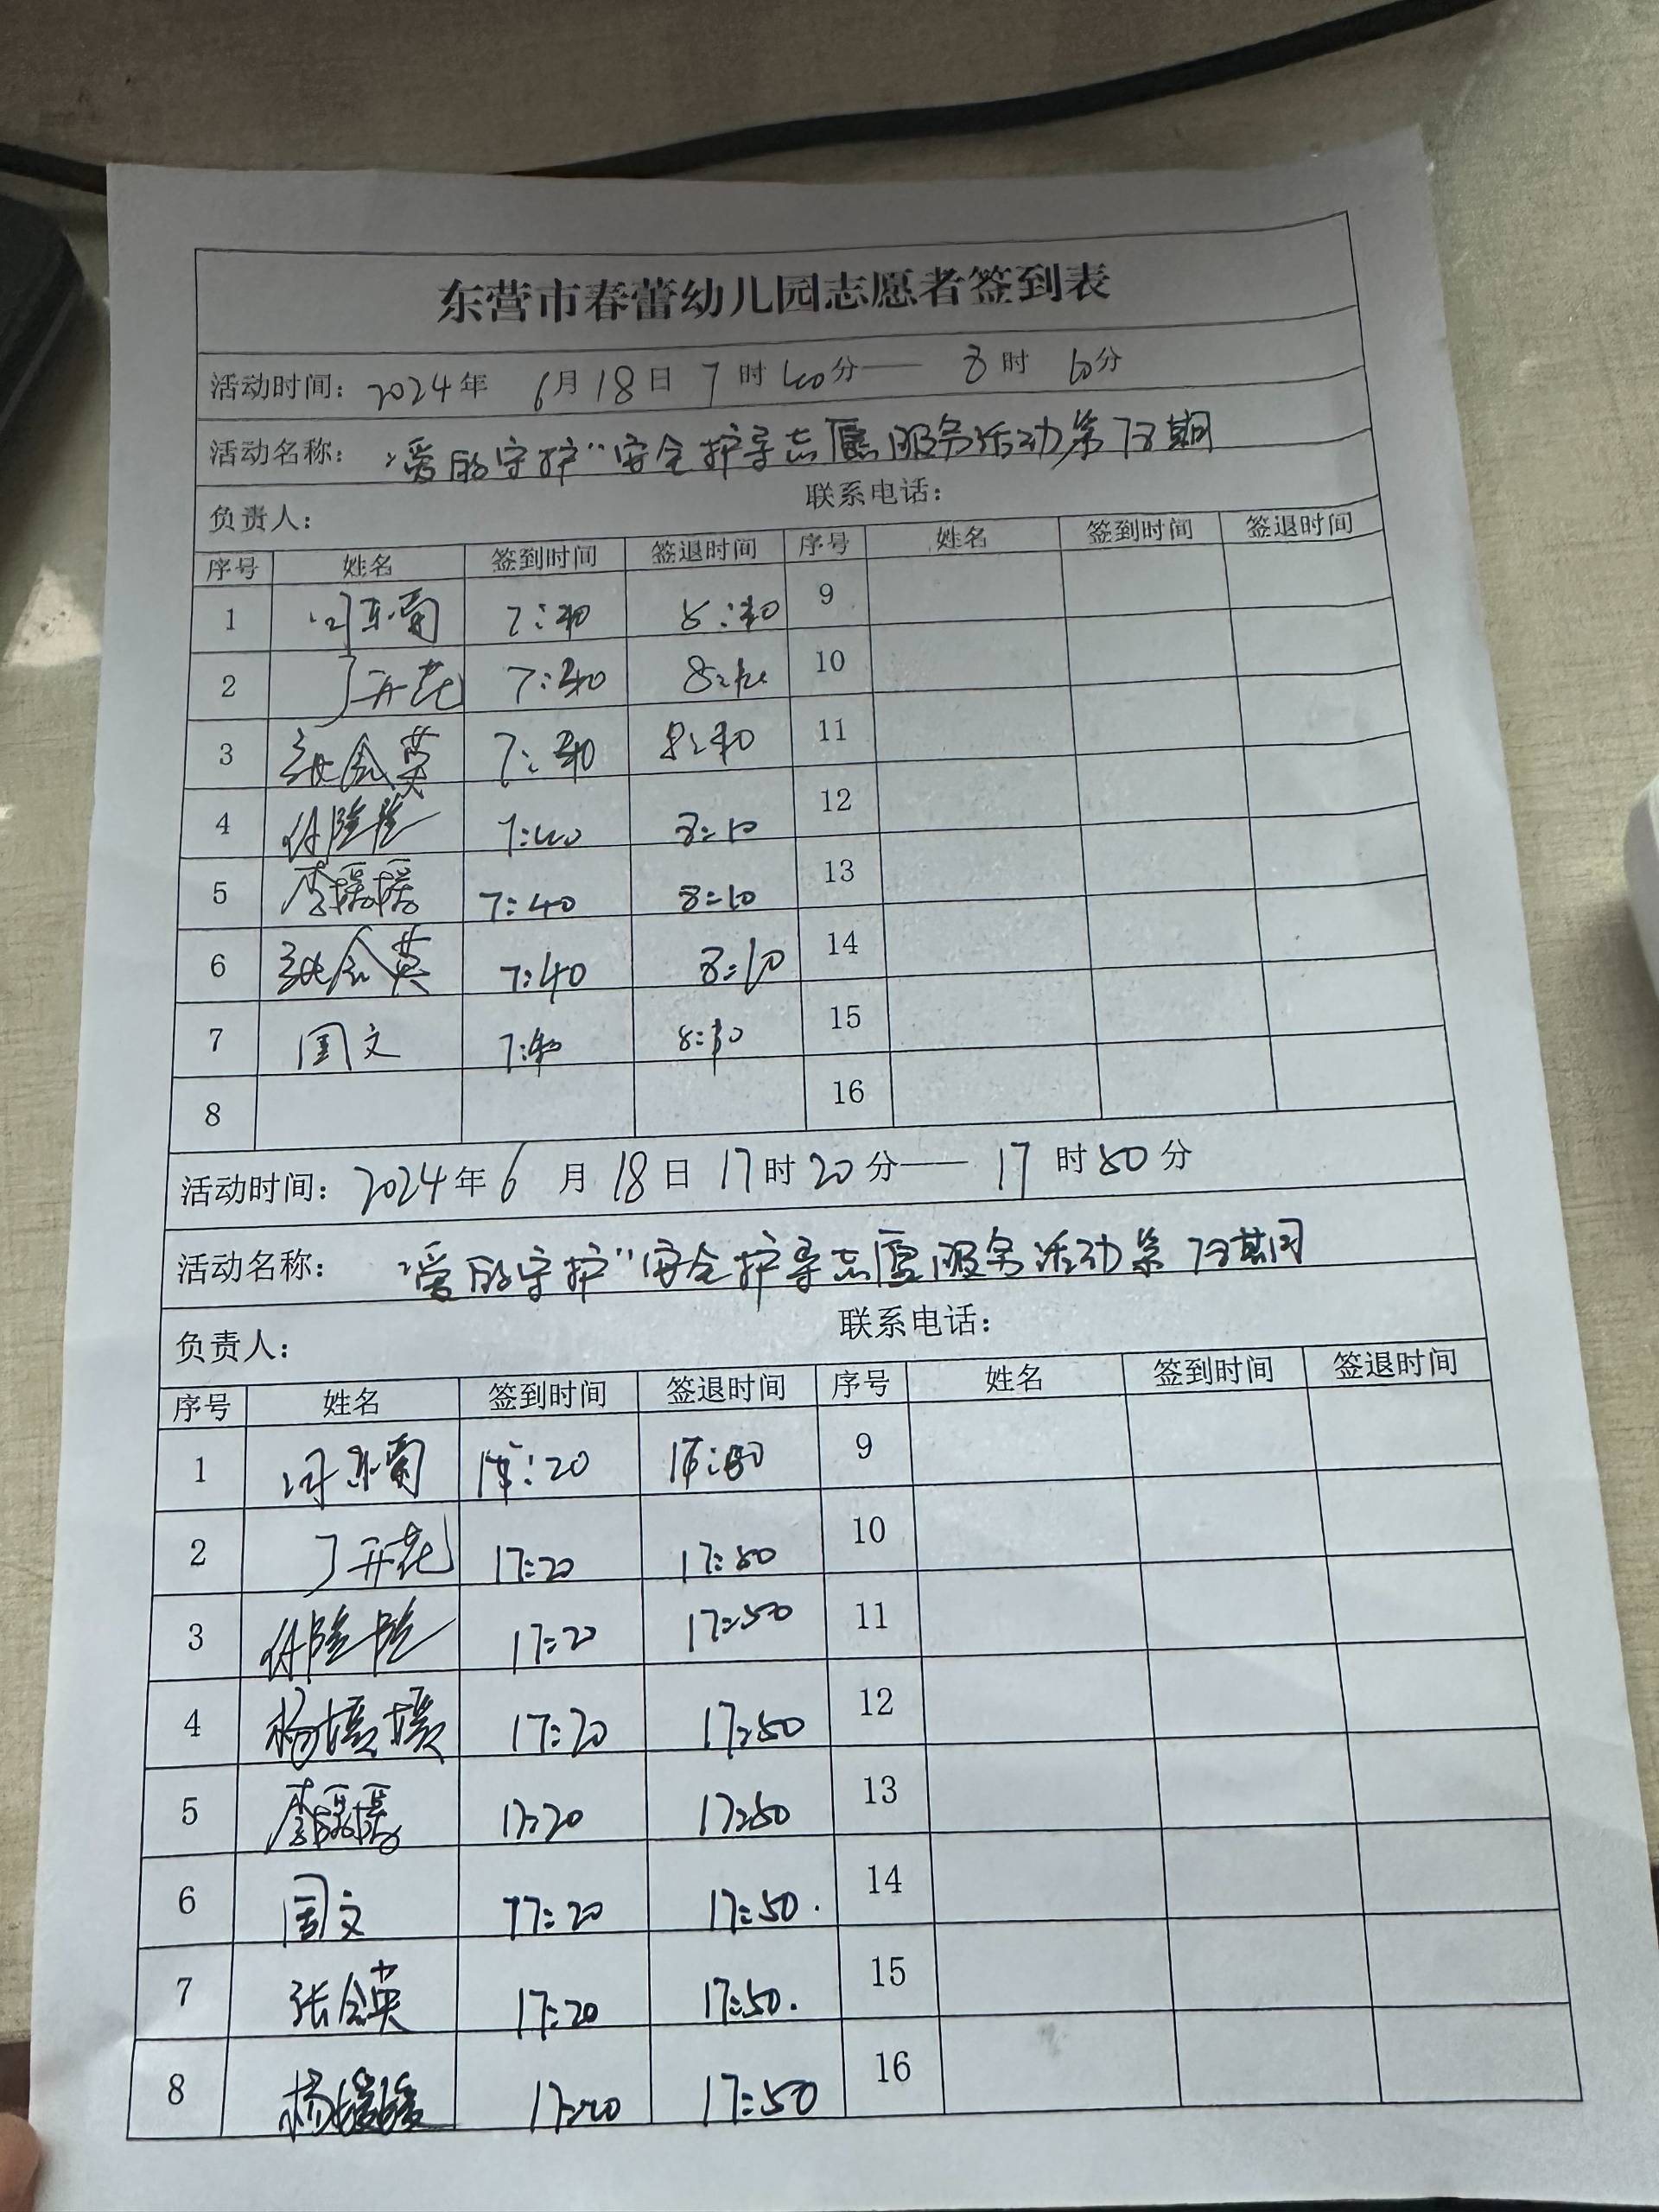 东营市春蕾幼儿园志愿者签到表
活动时间：2024年 6月18日 7时40分—— 8时 10分
活动名称："爱的守护"安全护导志愿服务活动第73期
负责人： 联系电话：
序号 姓名 签到时间 签退时间 序号 姓名 签到时间 签退时间
1 7:40 8:10 9
2 丁开花 7:40 8:10 10
3 张会英 7:40 8:10 11
4 7:40 8:10 12
5 李 7:40 8:10 13
6 张会英 7:40 8:10 14
7 周文 7:40 8:10 15
8 16
活动时间：2024年6 月 18日 17时20分—— 17 时50分
活动名称："爱的守护"安全护导志愿服务活动第73期
负责人： 联系电话：
序号 姓名 签到时间 签退时间 序号 姓名 签到时间 签退时间
1 :20 9
2 丁开花 17:20 17:50 10
3 17:20 17:50 11
4 杨媛媛 17:20 17:50 12
5 李 17:20 17:50 13
6 周文 17:20 17:50. 14
7 张会英 17:20 17:50. 15
8 杨媛媛 17:20 17:50 16